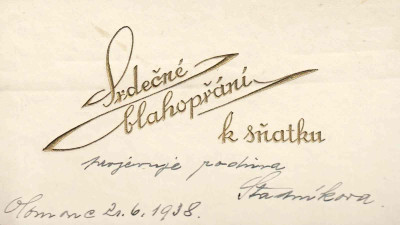 Srdečné
blahopřání
k sňatku
projevuje rodina
Stadníkova.
Olomouc 21.6.1938.